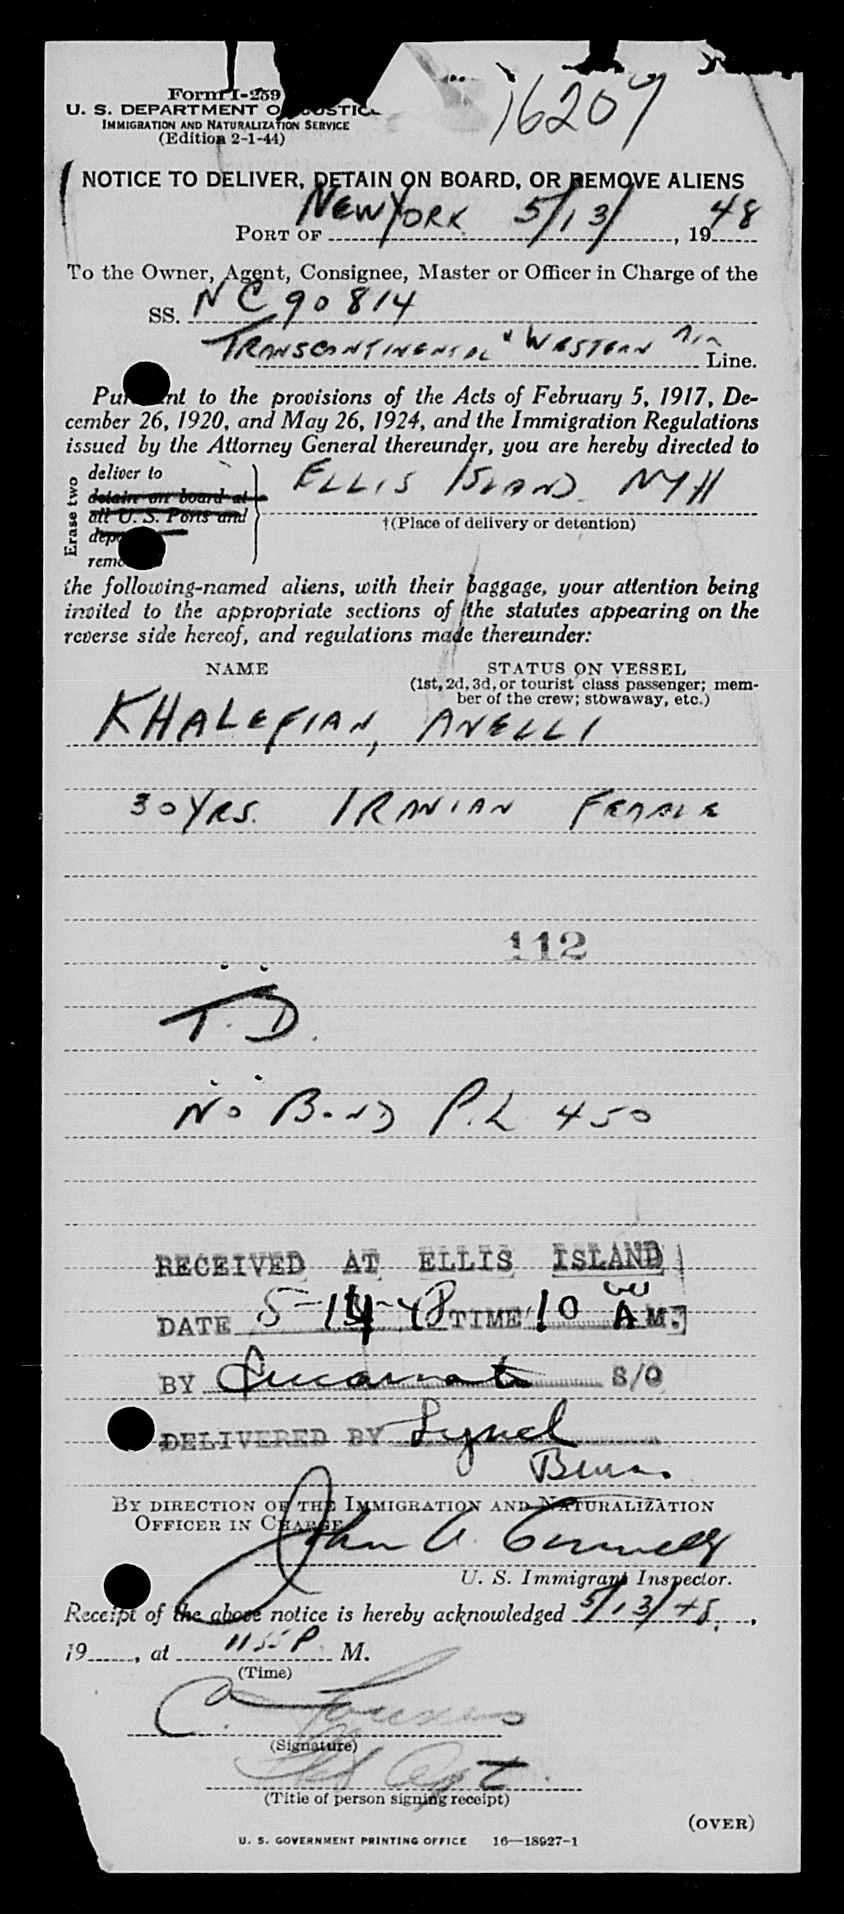 Form I-259
16207
U. S. DEPARTMENT OF JUSTICE
IMMIGRATION AND NATURALIZATION SERVICE
(Edition 2-1-44)
NOTICE TO DELIVER, DETAIN ON BOARD, OR REMOVE ALIENS
PORT OF NEW YORK 5/13/, 1948
To the Owner, Agent, Consignee, Master or Officer in Charge of the
SS. NC 90814
TRANSCONTINENTAL & WESTERN AIR Line.
Pursuant to the provisions of the Acts of February 5, 1917, De-
cember 26, 1920, and May 26, 1924, and the Immigration Regulations
issued by the Attorney General thereunder, you are hereby directed to
Erase two
deliver to
detain on board at
all U. S. Ports and
remove
ELLIS ISLAND NYH
†(Place of delivery or detention)
the following-named aliens, with their baggage, your attention being
invited to the appropriate sections of the statutes appearing on the
reverse side hereof, and regulations made thereunder:
NAME STATUS ON VESSEL
(1st, 2d, 3d, or tourist class passenger; mem-
ber of the crew; stowaway, etc.)
KHALEFIAN, ANELLI
30 YRS. IRANIAN FEMALE
112
T.D.
NO BOND P.L. 450
RECEIVED AT ELLIS ISLAND
DATE 5-14-48 TIME 10 00 A M.
BY S/O
DELIVERED BY
BY DIRECTION OF THE IMMIGRATION AND NATURALIZATION
OFFICER IN CHARGE
John A.
U. S. Immigrant Inspector.
Receipt of the above notice is hereby acknowledged 5/13/48,
19, at 1155 P M.
(Time)
C.
(Signature)
(Title of person signing receipt)
(OVER)
U. S. GOVERNMENT PRINTING OFFICE 16—18927-1